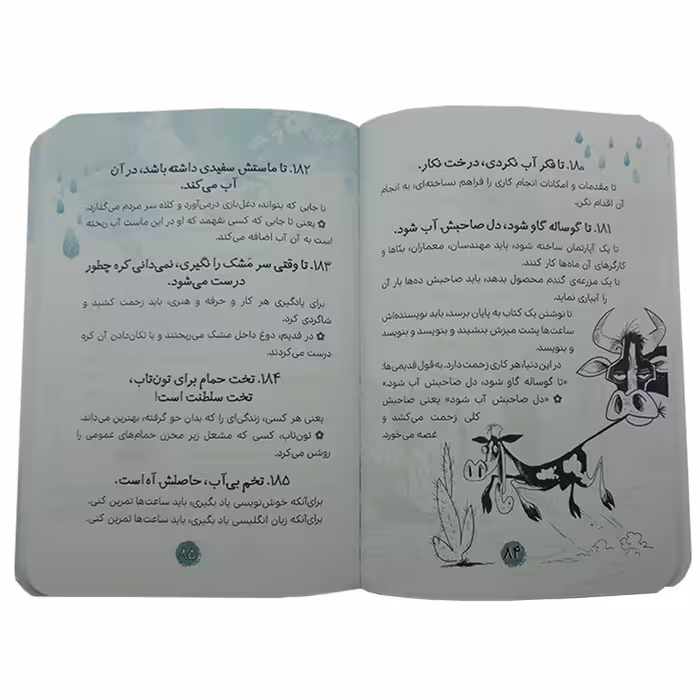 ۱۸۰. تا فکر آب نکردی، درخت نکار.
تا مقدمات و امکانات انجام کاری را فراهم نساخته‌ای، به انجام
آن اقدام نکن.
۱۸۱. تا گوساله گاو شود، دل صاحبش آب شود.
تا یک آپارتمان ساخته شود، باید مهندسان، معماران، بنّاها و
کارگرهای آن ماه‌ها کار کنند.
تا یک مزرعه‌ی گندم محصول بدهد، باید صاحبش ده‌ها بار آن
را آبیاری نماید.
تا نوشتن یک کتاب به پایان برسد، باید نویسنده‌اش
ساعت‌ها پشت میزش بنشیند و بنویسد و بنویسد
و بنویسد.
در این دنیا، هر کاری زحمت دارد. به قول قدیمی‌ها:
«تا گوساله گاو شود، دل صاحبش آب شود.»
✿ «دل صاحبش آب شود» یعنی صاحبش
کلی زحمت می‌کشد و
غصه می‌خورد.
۸۴
۱۸۲. تا ماستش سفیدی داشته باشد، در آن
آب می‌کند.
تا جایی که بتواند، دغل‌بازی درمی‌آورد و کلاه سر مردم می‌گذارد.
✿ یعنی تا جایی که کسی نفهمد که او در این ماست آب ریخته
است به آن آب اضافه می‌کند.
۱۸۳. تا وقتی سر مَشک را نگیری، نمی‌دانی کره چطور
درست می‌شود.
برای یادگیری هر کار و حرفه و هنری، باید زحمت کشید و
شاگردی کرد.
✿ در قدیم، دوغ داخل مشک می‌ریختند و با تکان‌دادن آن کره
درست می‌کردند.
۱۸۴. تخت حمام برای تون‌تاب،
تخت سلطنت است!
یعنی هر کسی، زندگی‌ای را که بدان خو گرفته، بهترین می‌داند.
✿ تون‌تاب، کسی که مشعل زیر مخزن حمام‌های عمومی را
روشن می‌کرد.
۱۸۵. تخم بی‌آب، حاصلش آه است.
برای‌آنکه خوش‌نویسی یاد بگیری، باید ساعت‌ها تمرین کنی.
برای‌آنکه زبان انگلیسی یاد بگیری، باید ساعت‌ها تمرین کنی.
۸۵